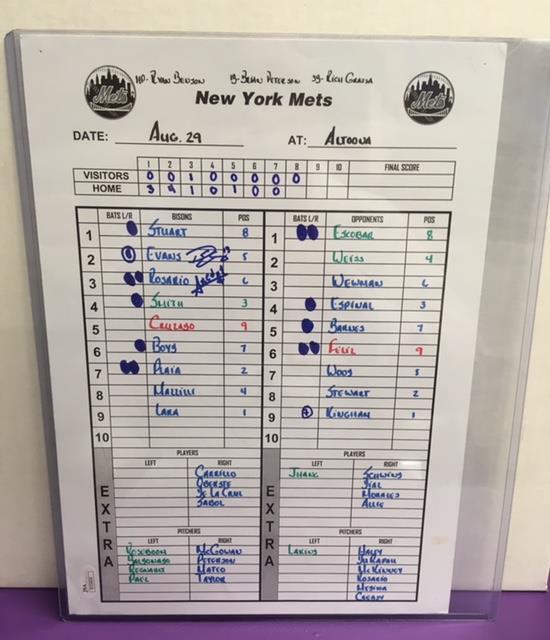 HP- RYAN BENSON 1B- BRIAN PETERSON 3B- RICH GRASSA
Mets Mets
New York Mets
DATE: AUG. 29 AT: ALTOONA
1 2 3 4 5 6 7 8 9 10 FINAL SCORE
VISITORS 0 0 1 0 0 0 0 0
HOME 3 4 1 0 1 0 0
BATS L/R BISONS POS BATS L/R OPPONENTS POS
1 STUART 8 1 ESCOBAR 8
2 EVANS 5 2 WEISS 4
3 ROSARIO 6 3 NEWMAN 6
4 SMITH 3 4 ESPINAL 3
5 5 BARNES 7
6 7 6 FELIZ 9
7 PLAIA 2 7 WOOD 5
8 4 8 STEWART 2
9 LARA 1 9 KINGHAM 1
10 10
EXTRA EXTRA
PLAYERS PLAYERS
LEFT RIGHT LEFT RIGHT
CARRILLO JHANG SCHWIND
OBERSTE
DE LA CRUZ MORALES
SABOL ALLIE
PITCHERS PITCHERS
LEFT RIGHT LEFT RIGHT
ROSEBOOM MCGOWAN LAKINS HALEY
PETERSON
REGNAULT MATEO MCKINNEY
PAEZ TAYLOR ROSARIO
MEDINA